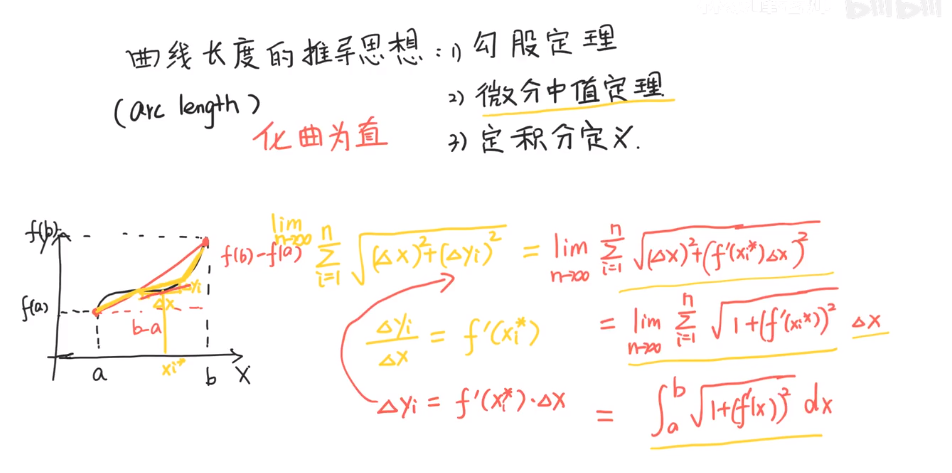 bilibili
曲线长度的推导思想: 1) 勾股定理
(arc length)
2) 微分中值定理
化曲为直
3) 定积分定义.
f(b)
f(a)
a
b
X
xi*
Δx
yi
b-a
f(b)-f(a)
lim n→∞ Σ i=1 n √((Δx)²+(Δyi)²) = lim n→∞ Σ i=1 n √((Δx)²+(f'(xi*)Δx)²)
Δyi/Δx = f'(xi*)
= lim n→∞ Σ i=1 n √(1+(f'(xi*))²) Δx
Δyi = f'(xi*)·Δx
= ∫ a b √(1+(f'(x))²) dx